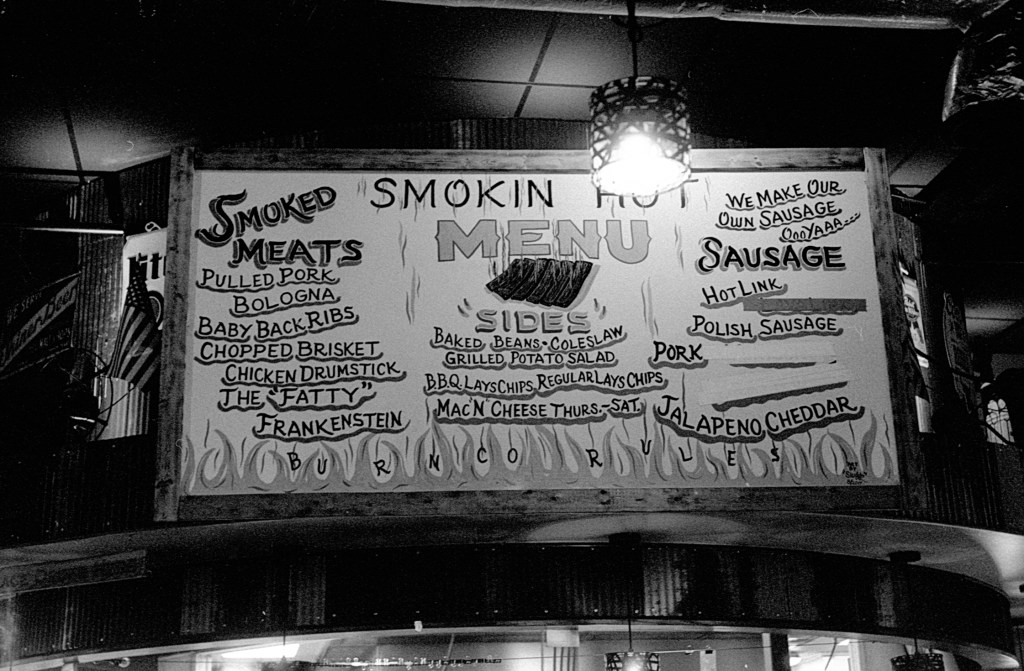 SMOKIN HOT
MENU
SMOKED
MEATS
PULLED PORK
BOLOGNA
BABY BACK RIBS
CHOPPED BRISKET
CHICKEN DRUMSTICK
THE "FATTY"
FRANKENSTEIN
"SIDES"
BAKED BEANS - COLESLAW
GRILLED POTATO SALAD
B.B.Q. LAYS CHIPS, REGULAR LAYS CHIPS
MAC "N" CHEESE THURS.-SAT.
WE MAKE OUR
OWN SAUSAGE
OOOYAAA...
SAUSAGE
HOT LINK
POLISH SAUSAGE
PORK
JALAPENO, CHEDDAR
BURNCO RULES